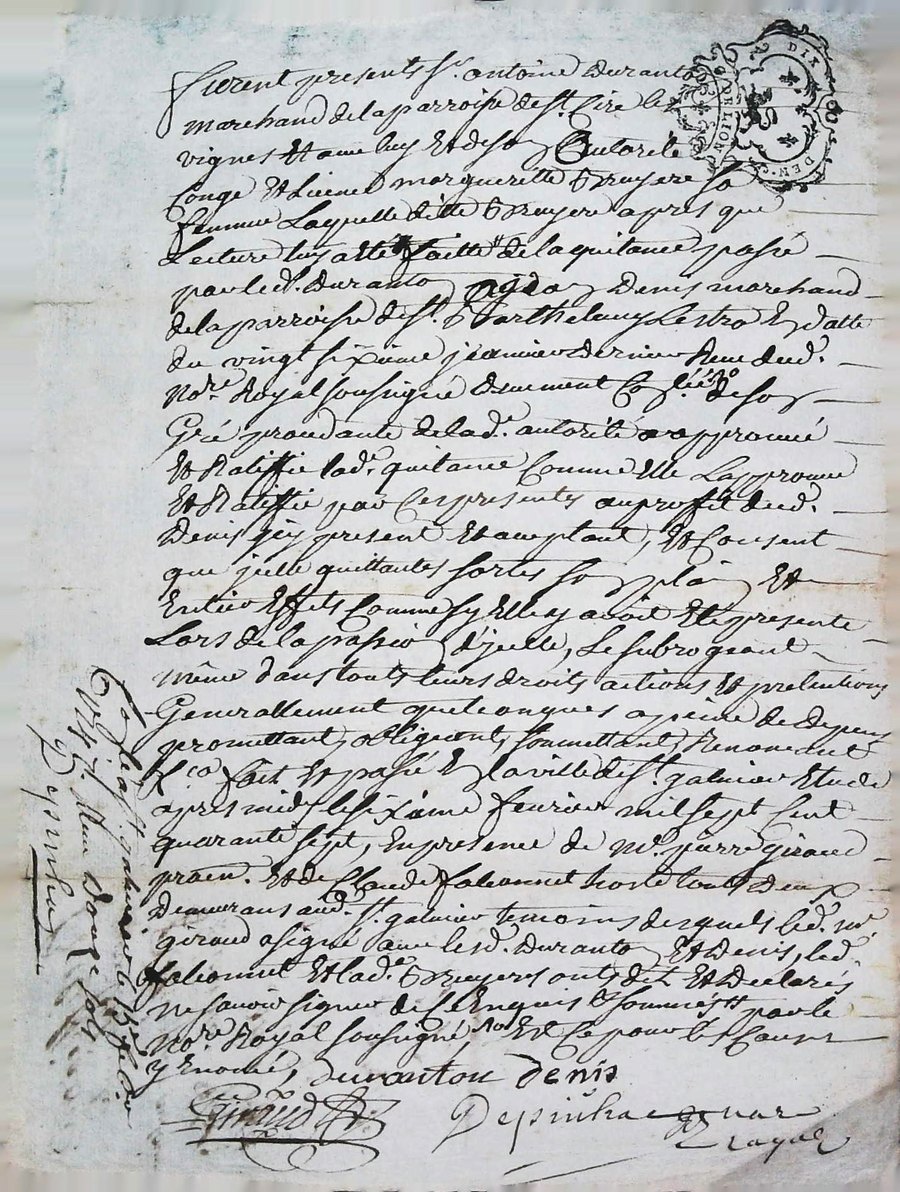 furent presents Sr. antoine duranton
marchand de la parroisse de St. Cire les
vignes Et avec luy Et de son Autorité
Congé Et licence marguerette bruyere sa
femme Laquelle ditte bruyere apres que
Lecture luy a été faitte de la quitance passée
par led. duranton a Denis marchand
de la parroisse de St. Barthelemy Lestra En datte
du vingt sixieme janvier dernier Receue dud.
Nore. Royal soussigné deuement de son
Gré procedante de lad. autorité a approuvé
Et Ratiffié lad. quitance Comme Elle L'approuve
Et Ratiffie par Ces presentes au proffit dud.
Denis icy present Et acceptant, Et Consent
que jcelle quittance sorte son plain Et
Entier Effets Comme sy Elle y avoit Eté presente
Lors de la passation d'jcelle, Le subrogeant
même dans touts leurs droits actions Et pretentions
Generallement quelconques a peine de depens
promettant, obligeant, soumettant, Renonceant
fait Et passé En la ville de St. galmier Etude
apres midy le sixieme fevrier mil sept Cent
quarante sept, En presence de Me. pierre giraud
praen. Et de Claude falconnet hoste touts deux
demeurans aud. St. galmier temoins desquels led. me.
giraud a signé avec lesd. duranton Et Denis, led.
falconnet Et lad. bruyere ont dit Et declaré
ne savoir signer de ce Enquis Et sommés par le
Nore. Royal soussigné,
duranton denis
Giraud
Depinhac nore
Royal
Controllé a St. galmier le 15e fevrier
1747. Receu douze sols
Depinhac
DIX DEN.